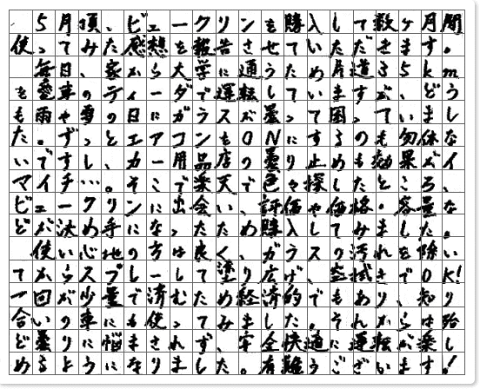 5月頃、ビュークリンを購入して数ヶ月間
使ってみた感想を報告させていただきます。
毎日、家から大学に通うため片道35km
を愛車のティーダで運転していますが、どう
も雨や雪の日にガラスが曇って困っていまし
た。ずっとエアコンをONにするのも勿体な
いですし、カー用品店の曇り止めも効果がイ
マイチ…。そこで楽天で色々探したところ、
ビュークリンに出会い、評価や価格・容量な
どが決め手になったため購入してみました。
使い心地の方は良く、ガラスの汚れを除い
てからスプレーして塗り広げ、空拭きでOK!
一回が少量で済むため経済的でもあり、知り
合いの車にも使ってみました。それからは殆
ど曇りに悩まされず、安全快適に運転が楽し
めるようになりました。有難うございます!